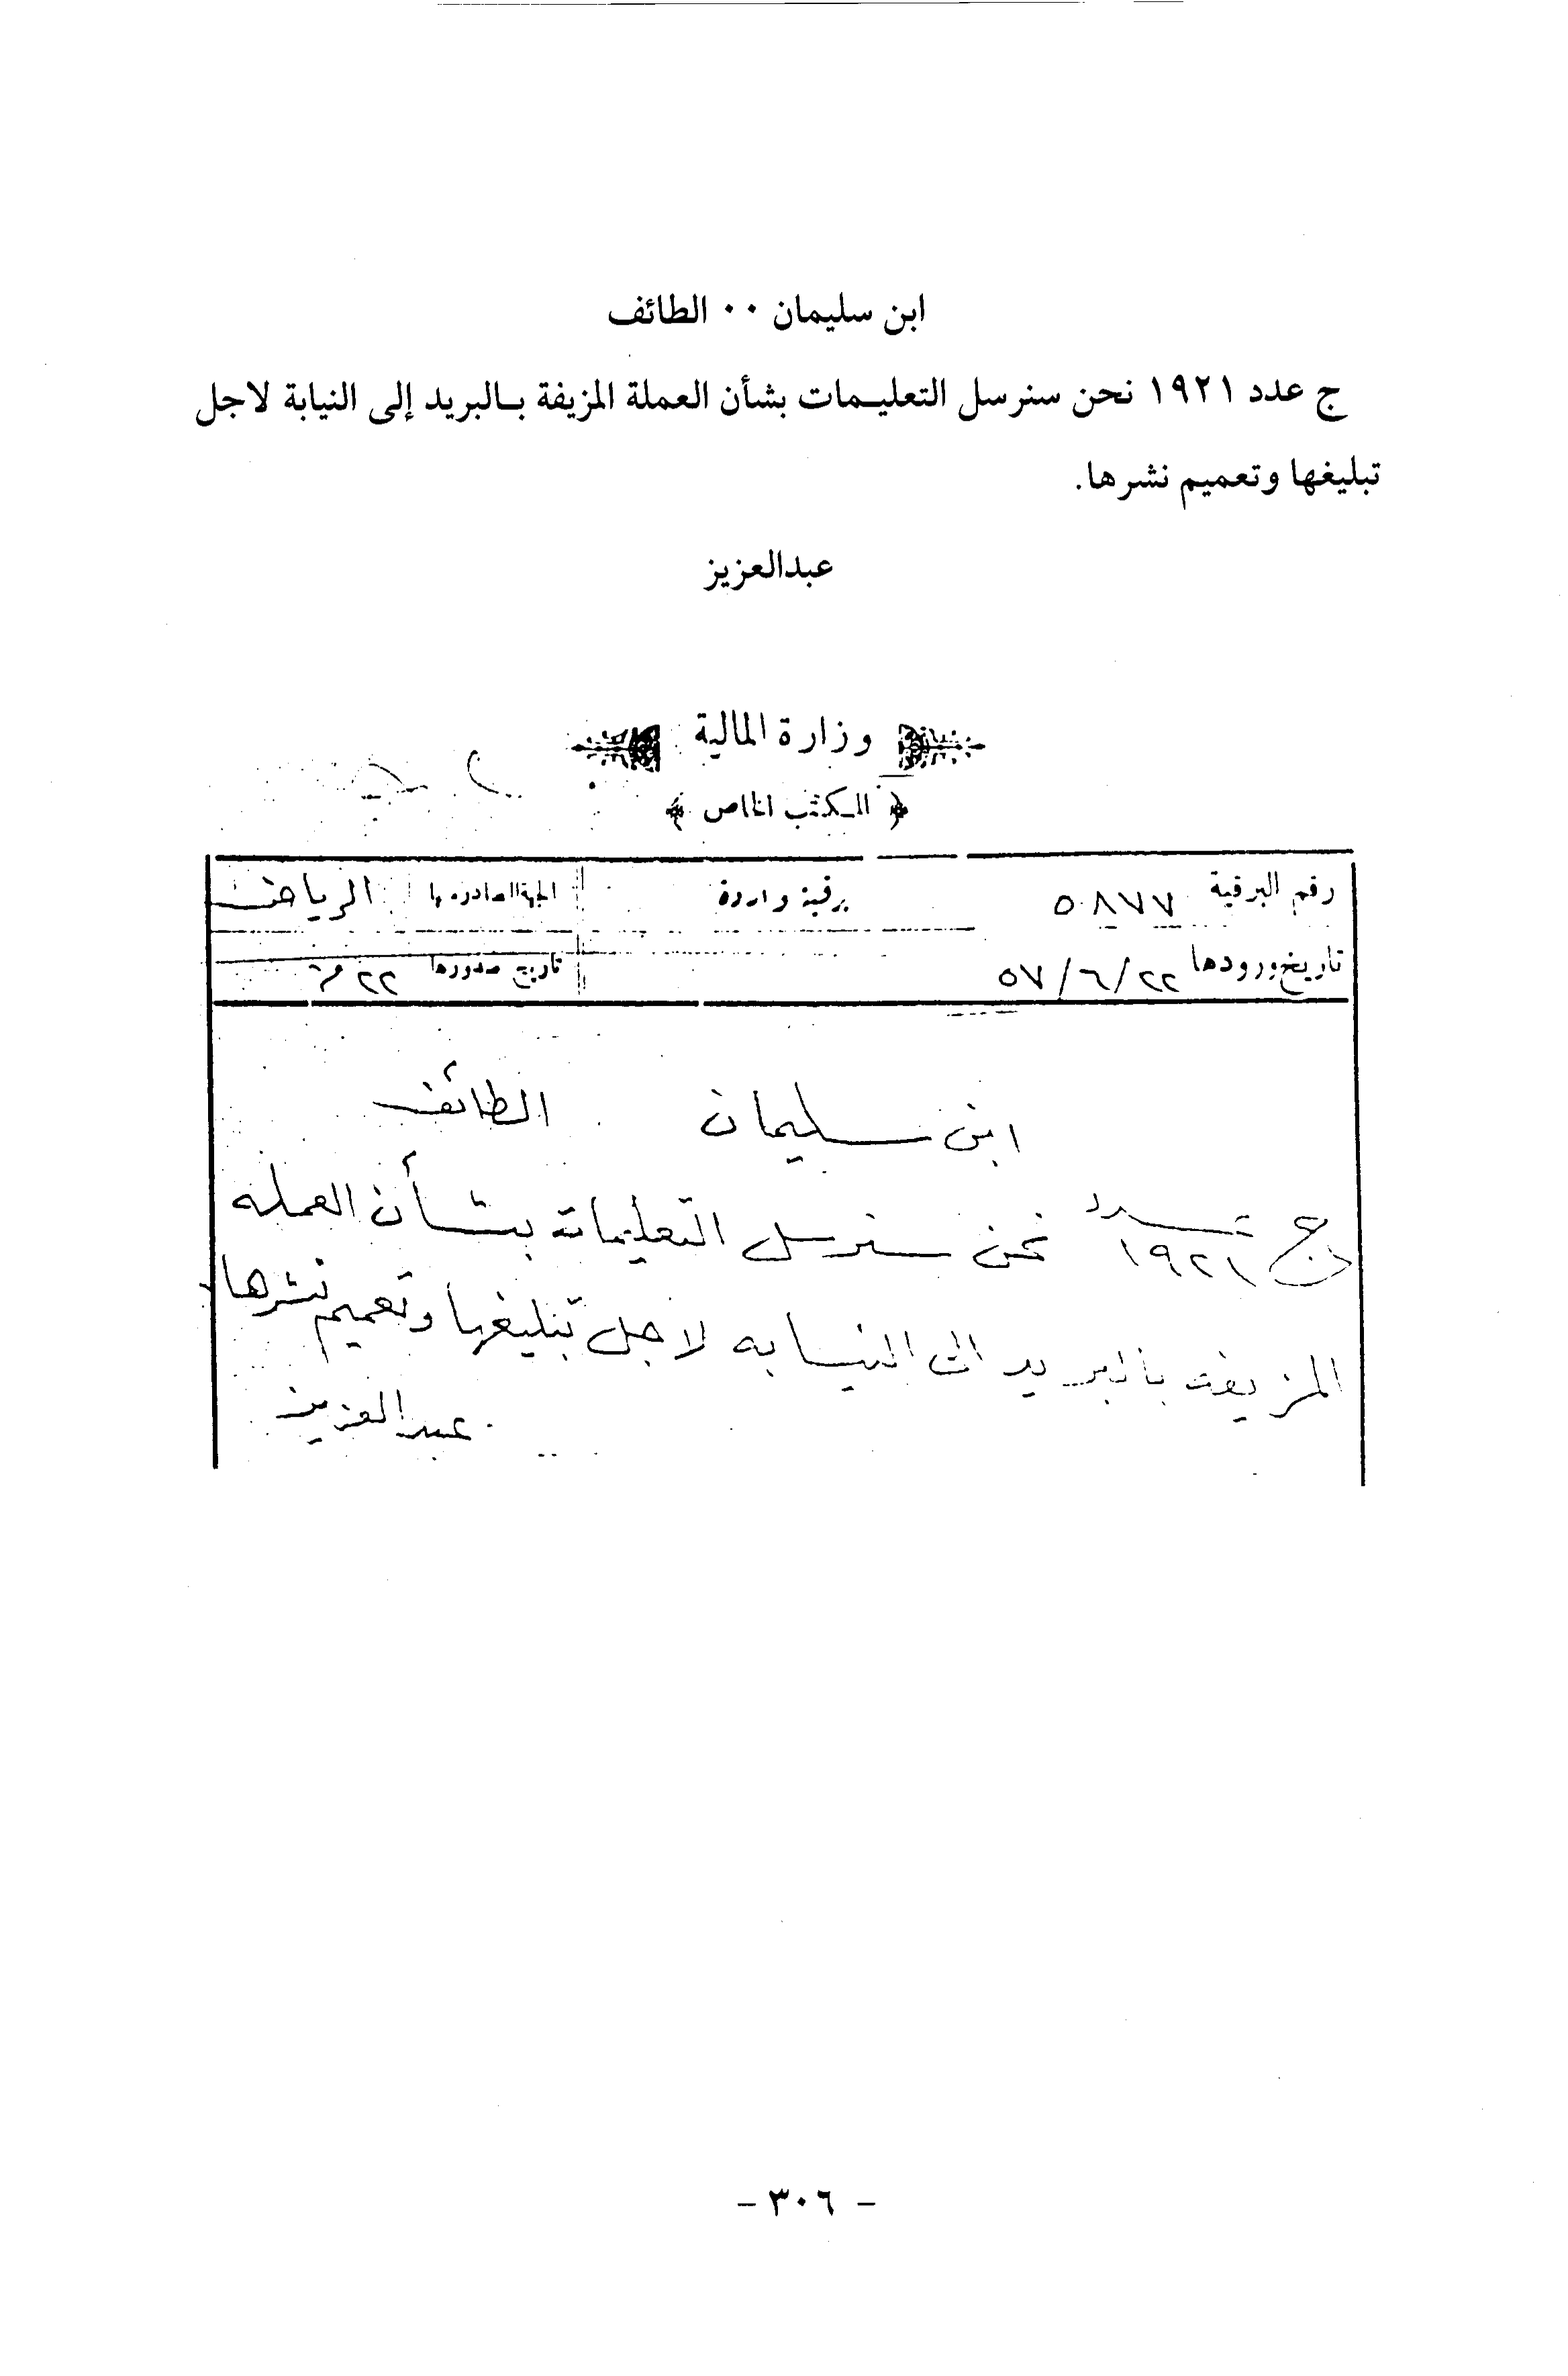 ابن سليمان ٠٠ الطائف
ج عدد ١٩٢١ نحن سنرسل التعليـمات بشأن العملة المزيفة بـالبريد إلى النيابة لاجل
تبليغها وتعميم نشرها.
عبدالعزيز
وزارة المالية
﴿ المـكتب الخاص ﴾
رقم البرقية ٥٨٧٧ برقية واردة الجهة الصادره منها الرياض
تاريخ ورودها ٥٧/٦/٢٢ تاريخ صدورها ٢٢ منه
ابن سليمان الطائف
ج عدد ١٩٢١ نحن سنرسل التعليمات بشأن العمله
المزيفه بالبريد الى النيابه لاجل تبليغها وتعميم نشرها
عبدالعزيز
- ٣٠٦ -